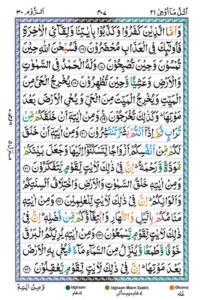 اتل ما اوحی ٢١
الروم ٣٠
وَاَمَّا الَّذِيْنَ كَفَرُوْا وَكَذَّبُوْا بِاٰيٰتِنَا وَلِقَآئِ الْاٰخِرَةِ
فَاُولٰٓئِكَ فِي الْعَذَابِ مُحْضَرُوْنَ فَسُبْحٰنَ اللّٰهِ حِيْنَ
تُمْسُوْنَ وَحِيْنَ تُصْبِحُوْنَ وَلَهُ الْحَمْدُ فِي السَّمٰوٰتِ
وَالْاَرْضِ وَعَشِيًّا وَّحِيْنَ تُظْهِرُوْنَ يُخْرِجُ الْحَيَّ مِنَ
الْمَيِّتِ وَيُخْرِجُ الْمَيِّتَ مِنَ الْحَيِّ وَيُحْيِ الْاَرْضَ
بَعْدَ مَوْتِهَا وَكَذٰلِكَ تُخْرَجُوْنَ وَمِنْ اٰيٰتِهٖٓ اَنْ خَلَقَكُمْ مِّنْ
تُرَابٍ ثُمَّ اِذَآ اَنْتُمْ بَشَرٌ تَنْتَشِرُوْنَ وَمِنْ اٰيٰتِهٖٓ اَنْ خَلَقَ
لَكُمْ مِّنْ اَنْفُسِكُمْ اَزْوَاجًا لِّتَسْكُنُوْٓا اِلَيْهَا وَجَعَلَ بَيْنَكُمْ
مَّوَدَّةً وَّرَحْمَةً اِنَّ فِيْ ذٰلِكَ لَاٰيٰتٍ لِّقَوْمٍ يَّتَفَكَّرُوْنَ
وَمِنْ اٰيٰتِهٖ خَلْقُ السَّمٰوٰتِ وَالْاَرْضِ وَاخْتِلَافُ اَلْسِنَتِكُمْ
وَاَلْوَانِكُمْ اِنَّ فِيْ ذٰلِكَ لَاٰيٰتٍ لِّلْعٰلِمِيْنَ وَمِنْ اٰيٰتِهٖ
مَنَامُكُمْ بِالَّيْلِ وَالنَّهَارِ وَابْتِغَآؤُكُمْ مِّنْ فَضْلِهٖ اِنَّ فِيْ
ذٰلِكَ لَاٰيٰتٍ لِّقَوْمٍ يَّسْمَعُوْنَ وَمِنْ اٰيٰتِهٖ يُرِيْكُمُ الْبَرْقَ
خَوْفًا وَّطَمَعًا وَّيُنَزِّلُ مِنَ السَّمَآءِ مَآءً فَيُحْيٖ بِهِ الْاَرْضَ
بَعْدَ مَوْتِهَا اِنَّ فِيْ ذٰلِكَ لَاٰيٰتٍ لِّقَوْمٍ يَّعْقِلُوْنَ
Idghaam
Idghaam Meem Saakin
Ghunna
غنّه